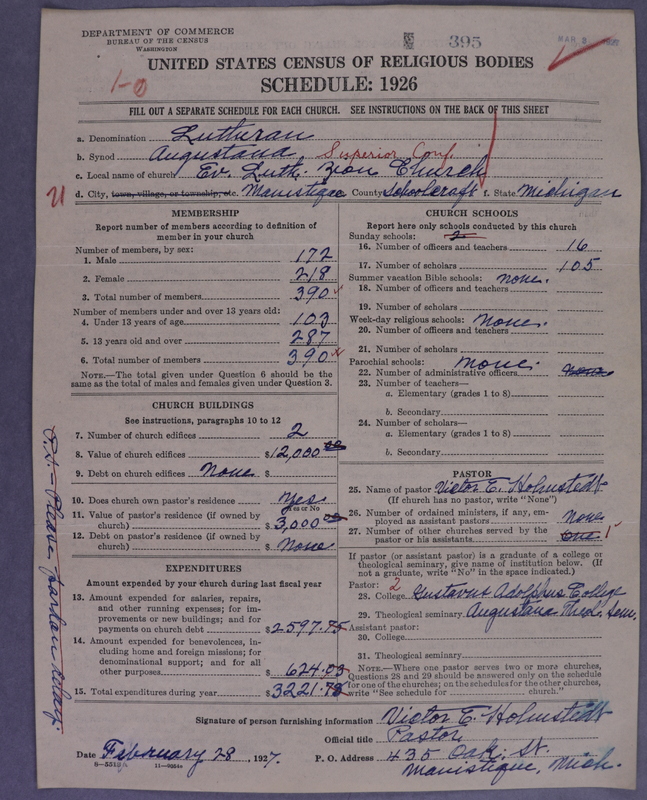 DEPARTMENT OF COMMERCE
BUREAU OF THE CENSUS
WASHINGTON
395
MAR 8
UNITED STATES CENSUS OF RELIGIOUS BODIES
SCHEDULE: 1926
1-0
FILL OUT A SEPARATE SCHEDULE FOR EACH CHURCH. SEE INSTRUCTIONS ON THE BACK OF THIS SHEET
a. Denomination Lutheran
b. Synod Augustana Superior Conf.
c. Local name of church Ev. Luth. Zion Church
d. City, town, village, or township, etc. Manistique County Schoolcraft f. State Michigan
MEMBERSHIP
Report number of members according to definition of member in your church
Number of members, by sex:
1. Male 172
2. Female 218
3. Total number of members 390
Number of members under and over 13 years old:
4. Under 13 years of age 103
5. 13 years old and over 287
6. Total number of members 390
NOTE.—The total given under Question 6 should be the
same as the total of males and females given under Question 3.
CHURCH BUILDINGS
See instructions, paragraphs 10 to 12
7. Number of church edifices 2
8. Value of church edifices $12,000 00
9. Debt on church edifices None $
10. Does church own pastor's residence Yes
Yes or No
11. Value of pastor's residence (if owned by
church) $3,000 00
12. Debt on pastor's residence (if owned by
church) $ None
EXPENDITURES
Amount expended by your church during last fiscal year
13. Amount expended for salaries, repairs,
and other running expenses; for im-
provements or new buildings; and for
payments on church debt $2597.75
14. Amount expended for benevolences,
including home and foreign missions; for
denominational support; and for all
other purposes $624.03
15. Total expenditures during year $3221.78
CHURCH SCHOOLS
Report here only schools conducted by this church
Sunday schools: 2
16. Number of officers and teachers 16
17. Number of scholars 105
Summer vacation Bible schools: None.
18. Number of officers and teachers
19. Number of scholars
Week-day religious schools: None.
20. Number of officers and teachers
21. Number of scholars
Parochial schools: None.
22. Number of administrative officers None
23. Number of teachers—
a. Elementary (grades 1 to 8)
b. Secondary
24. Number of scholars—
a. Elementary (grades 1 to 8)
b. Secondary
PASTOR
25. Name of pastor Victor E. Holmstedt
(If church has no pastor, write "None")
26. Number of ordained ministers, if any, em-
ployed as assistant pastors None
27. Number of other churches served by the
pastor or his assistants One 1
If pastor (or assistant pastor) is a graduate of a college or
theological seminary, give name of institution below. (If
not a graduate, write "No" in the space indicated.)
Pastor: 2
28. College Gustavus Adolphus College
29. Theological seminary Augustana Theol. Sem.
Assistant pastor:
30. College
31. Theological seminary
NOTE.—Where one pastor serves two or more churches,
Questions 28 and 29 should be answered only on the schedule
for one of the churches; on the schedules for the other churches,
write "See schedule for church."
Signature of person furnishing information Victor E. Holmstedt
Official title Pastor
Date February 28, 1927. P. O. Address 435 Oak St.
Manistique, Mich.
11—9864